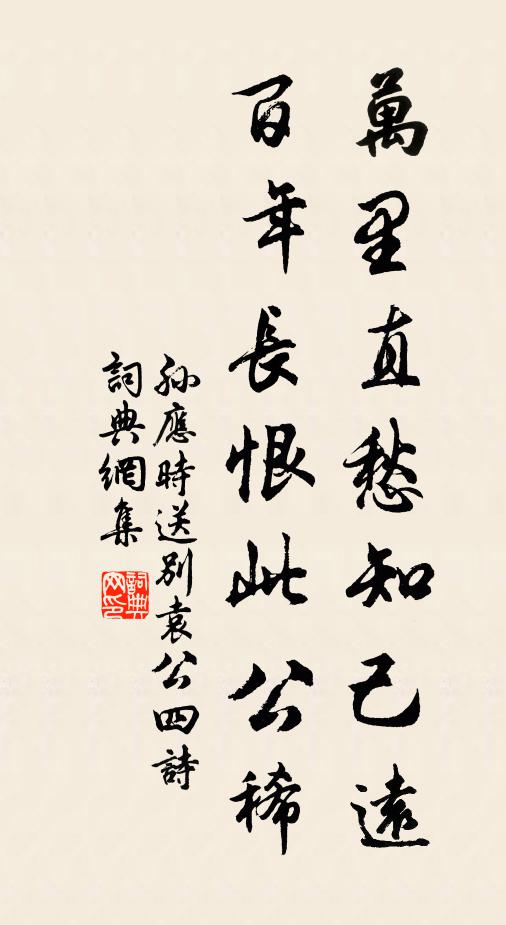 萬里直愁知己遠
百年長恨此公稀
孫應時送別袁公四詩
詞典網集
詞典
网印